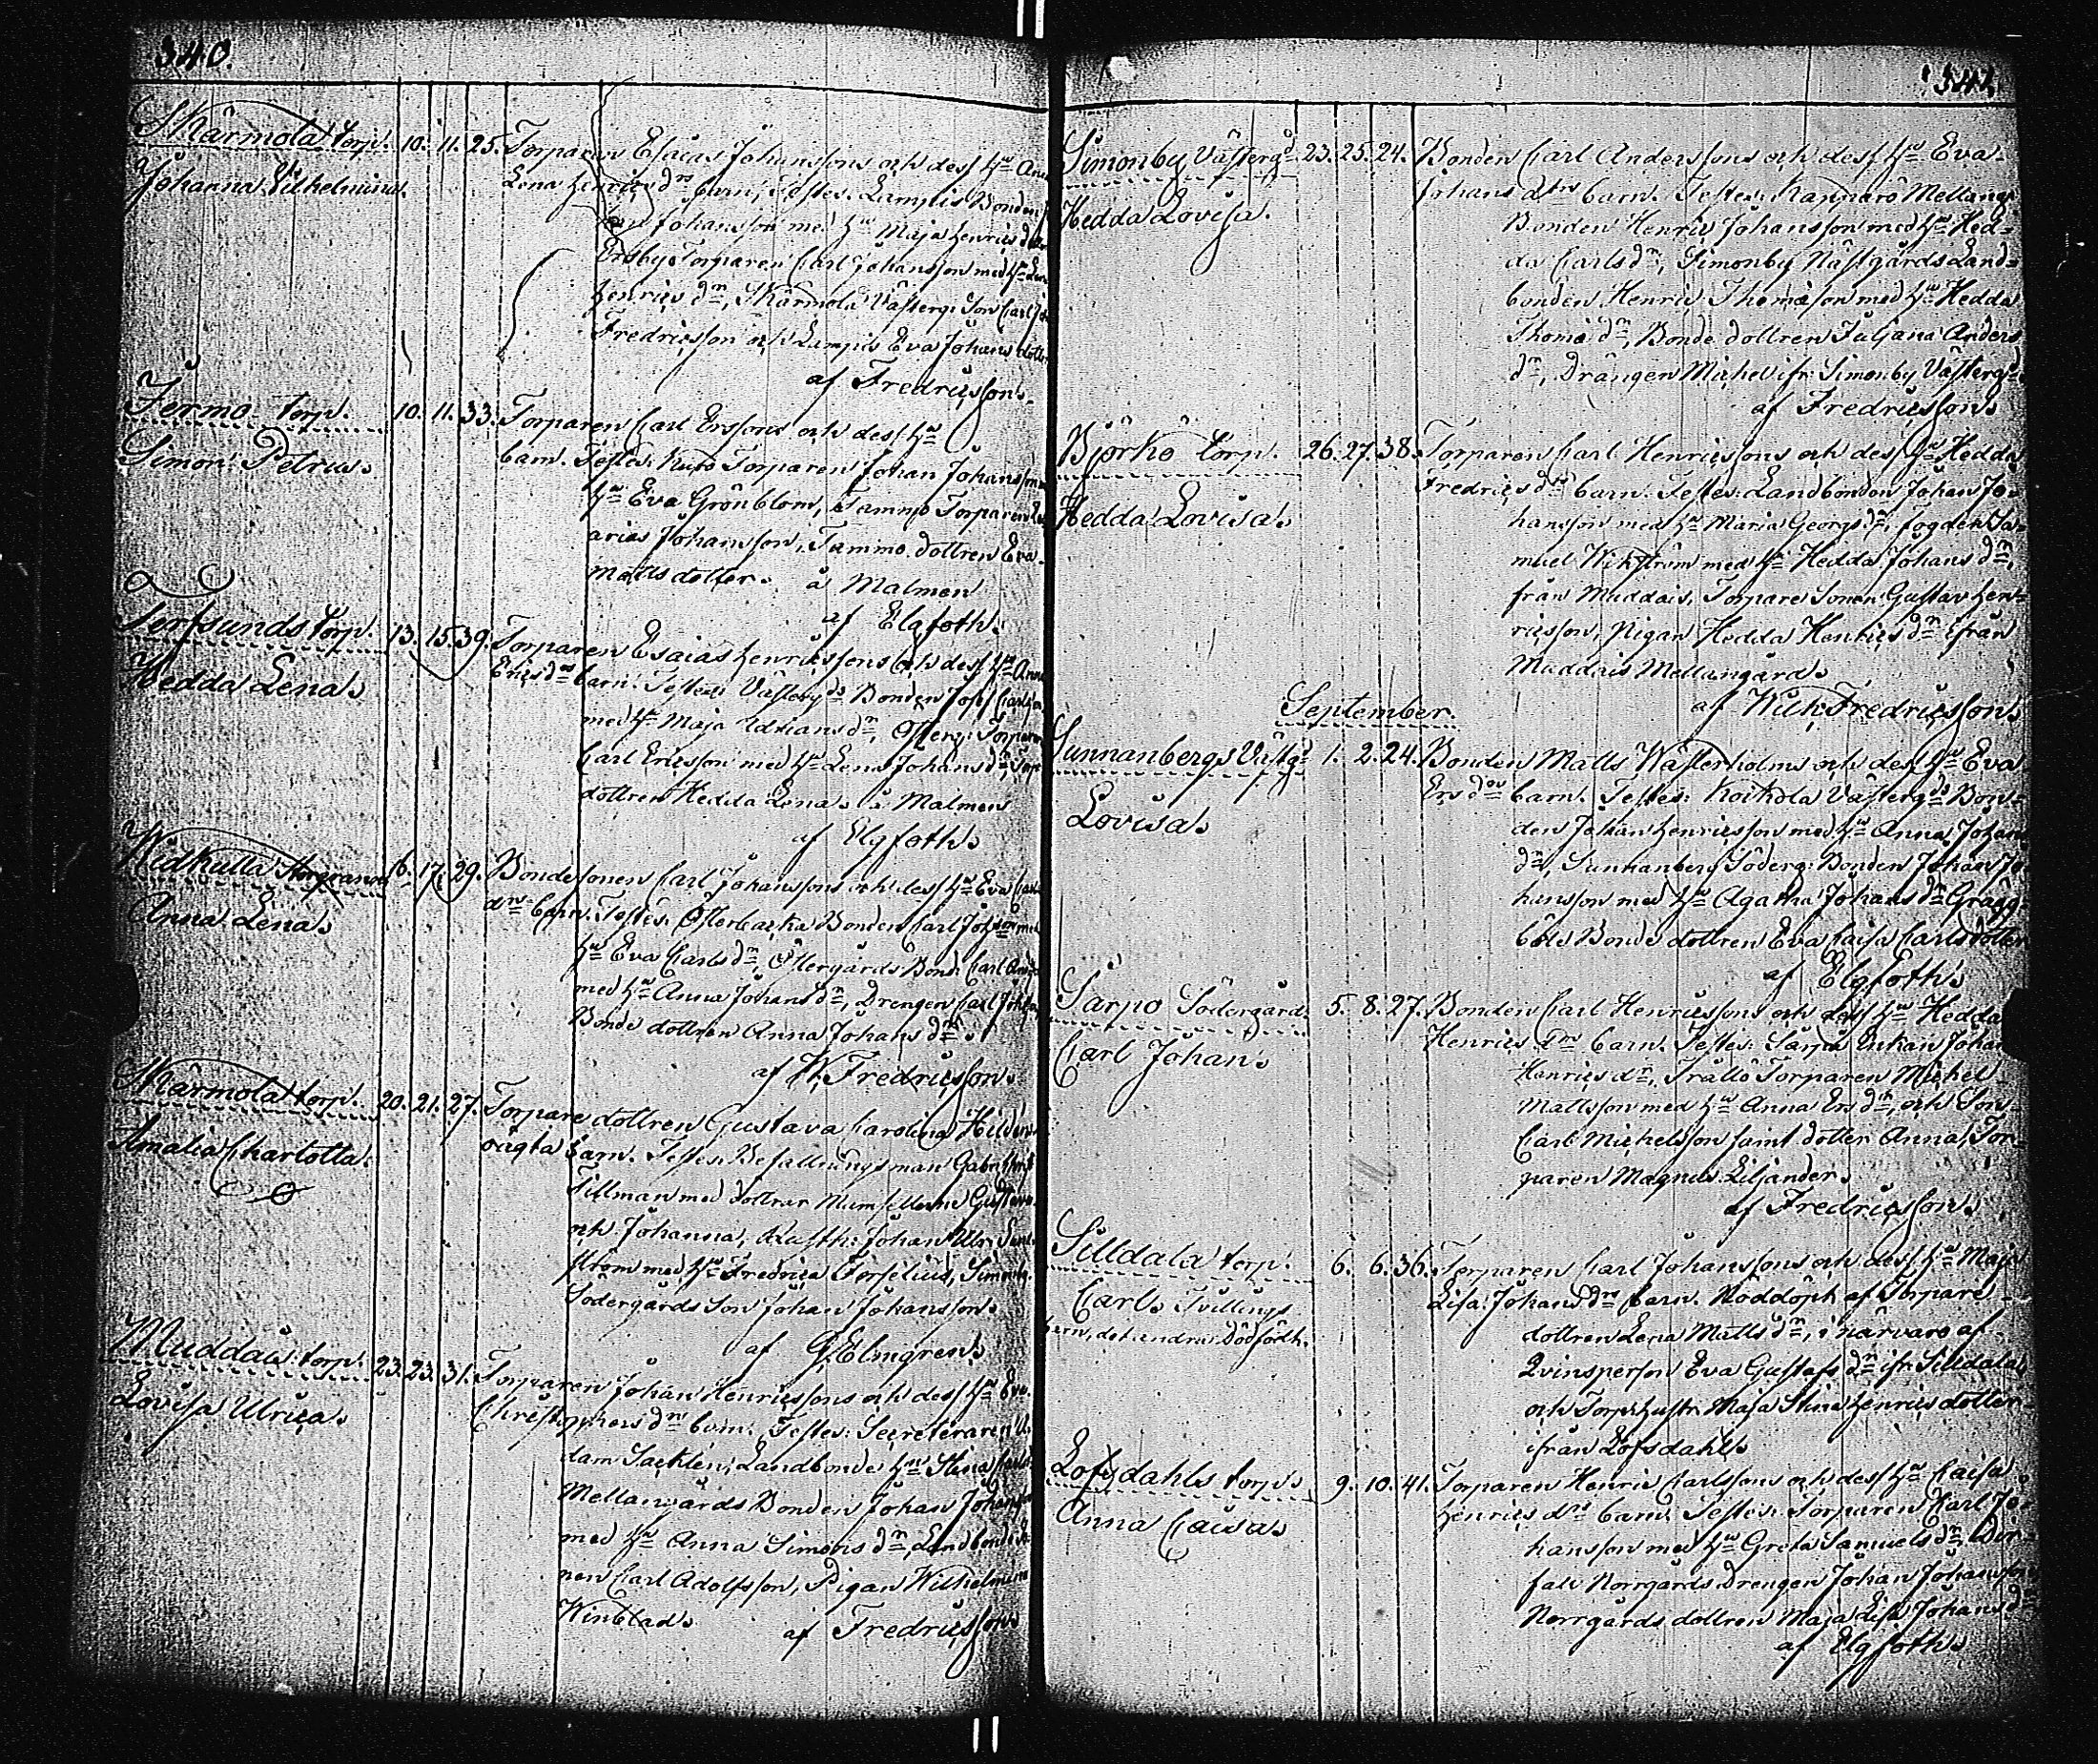 340.
Skärmola torp. 10. 11. 25. Torparen Esaias Johanssons och dess Hu Anna
Johanna Vilhelmina. Lena Henrics drs barn, Testes: Lampis Bonden
Johansson med Hu Maja Henrics dotter
Ersby Torparen Carl Johansson med Hu Lena
Henrics dr, Skärmola Västerg: Son Carl
Fredricsson och Lampis Eva Johans dotter
af Fredricsson.
Jermo torp. 10. 11. 33. Torparen Carl Erssons och dess Hu
Simon Petrus. barn. Testes: Kufo Torparen Johan Johansson
Hu Eva Grönblom, Tammo Torparen
arias Johansson, Tammo dottren Eva
Matts dotter. å Malmen
af Elgfoth.
Terfsunds torp. 13. 15. 39. Torparen Esaias Henricssons och dess Hu Anna
Hedda Lena. Erics drs barn. Testes: Västergds Bonden Josef Carlsson
med Hu Maja Adrians dr, Österg: Torparen
Carl Ericsson med Hu Lena Johans dr, Torp
dottren Hedda Lena. å Malmen
af Elgfoth.
Widkulla Storgranns 16. 17. 29. Bonde sonen Carl Johanssons och dess Hu Eva Carls
Anna Lena. drs barn. Testes: Österbacka Bonden Carl Johsson med
Hu Eva Carls dr, Östergårds Bond: Carl Anders
med Hu Anna Johans dr, Drengen Carl Johsson
Bonde dottren Anna Johans dr.
af W. Fredricsson.
Skärmola torp. 20. 21. 27. Torpare dottren Gustava Carolina Hildéns
Amalia Charlotta. oägta barn. Testes: Befallningsman Gabriel
Tillman med döttrar Mamsellerne Gustava
och Johanna, Rusth: Johan Ulr:
ström med Hu Fredrica Forselius, Simonby
Södergårds Son Johan Johansson.
af G. Elmgren.
Muddais torp. 23. 23. 31. Torparen Johan Henricssons och dess Hu Eva
Lovisa Ulrica. Christophers drs barn. Testes: Secreteraren A
dam Sacklén, Landbonde Hu Stina Carls
Mellangårds Bonden Johan Johansson
med Hu Anna Simons dr, Landbonde So
nen Carl Adolfsson, Pigan Wilhelmina
Winblad. af Fredricsson
341.
Simonby Västergd 23. 25. 24. Bonden Carl Anderssons och dess Hu Eva
Hedda Lovisa. Johans dtrs barn. Testes: Kapparö Mellang
Bonden Henric Johansson med Hu Hed=
da Carls dr, Simonby Nästgårds Land=
bonden Henric Thomasson med Hu Hedda
Thomæ dr, Bonde dottren Juliana Anders
dr, Drängen Michel ifr. Simonby Västergd
af Fredricsson.
Björkö torp. 26. 27. 38. Torparen Carl Henricssons och dess Hu Hedda
Hedda Lovisa. Fredrics drs barn. Testes: Landbonden Johan Jo=
hansson med Hu Maria Georgs dr, Fogden Sa=
muel Wikström med Hu Hedda Johans dr,
från Muddais, Torpare Sonen Gustav Hen=
ricsson, Pigan Hedda Henrics dr ifrån
Muddais Mellangård.
af Wilh: Fredricsson.
September.
Sunnanbergs Västgd 1. 2. 24. Bonden Matts Wästerholms och dess Hu Eva
Lovisa. Ers drs barn. Testes: Koikola Västergds Bon=
den Johan Henricsson med Hu Anna Johans
dr, Sunnanberg Söderg: Bonden Johan Jo
hansson med Hu Agatha Johans dr Grägg
böle Bonde dottren Eva Caisa Carls dotter
af Elgfoth.
Särpo Södergård. 5. 8. 27. Bonden Carl Henricssons och dess Hu Hedda
Carl Johan. Henrics drs barn. Testes: Särpo Enkan Johan
Henrics dr, Trallö Torparen Michel
Mattsson med Hu Anna Ers dr, och Son
Carl Michelsson samt dotter Anna, Tor=
paren Magnus Liljander.
af Fredricsson.
Silldala torp. 6. 6. 36. Torparen Carl Johanssons och dess Hu Maja
Carl. Tvillings Lisa Johans drs barn. Nöddöpt af Torpare
barn, det andra Dödfödt. dottren Lena Matts dr, i närvaro af
Qvinsperson Eva Gustafs dr ifr. Silldala
och Torp: hustr. Maja Stina Henrics dotter
ifrån Lofsdahl.
Lofsdahls torp. 9. 10. 41. Torparen Henric Carlssons och dess Hu Caisa
Anna Caisa. Henrics drs barn. Testes: Torparen Carl Jo
hansson med Hu Greta Samuels dr,
Norrgårds Drengen Johan Johansson
Norrgårds dottren Maja Lisa Johans dr
af Elgfoth.